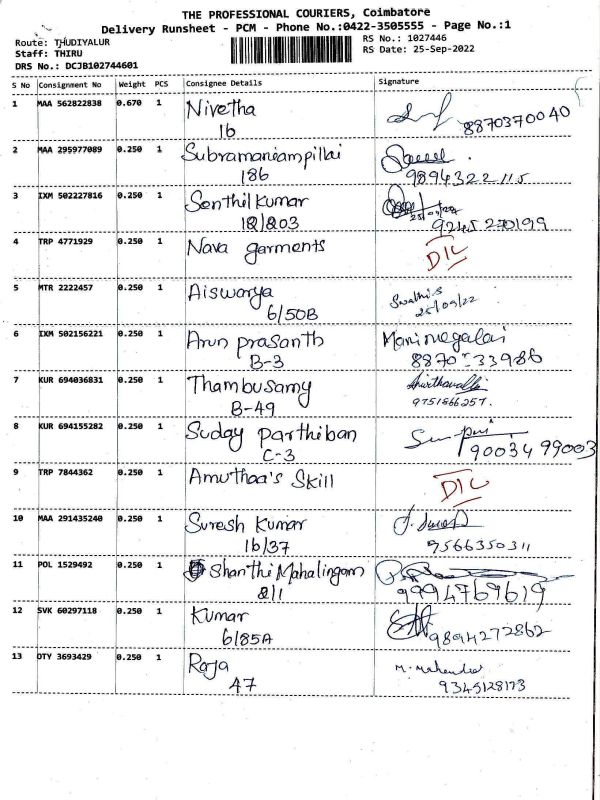 THE PROFESSIONAL COURIERS, Coimbatore
Delivery Runsheet - PCM - Phone No.:0422-3505555 - Page No.:1
Route: THUDIYALUR
RS No.: 1027446
Staff: THIRU
RS Date: 25-Sep-2022
DRS No.: DCJB102744601
S No Consignment No Weight PCS Consignee Details Signature
1 MAA 562822838 0.670 1 Nivetha
16 8870370040
2 MAA 295977089 0.250 1 Subramaniampillai
186 9894322115
3 IXM 502227816 0.250 1 Senthil Kumar
12/203 25/09/22
9245270199
4 TRP 4771929 0.250 1 Nava garments DIL
5 MTR 2222457 0.250 1 Aiswarya Swathi S
6/50B 25/09/22
6 IXM 502156221 0.250 1 Arun prasanth Manimegalai
B-3 8870733986
7 KUR 694036831 0.250 1 Thambusamy
B-49 9751866257.
8 KUR 694155282 0.250 1 Suday parthiban
C-3 9003499003
9 TRP 7844362 0.250 1 Amuthaa's Skill DIL
10 MAA 291435240 0.250 1 Suresh Kumar
16/37 9566350311
11 POL 1529492 0.250 1 Shanthi Mahalingam
2/1 9994769619
12 SVK 60297118 0.250 1 Kumar
6/85A 9894272862
13 OTY 3693429 0.250 1 Raja M. Mahendra
47 9345128173